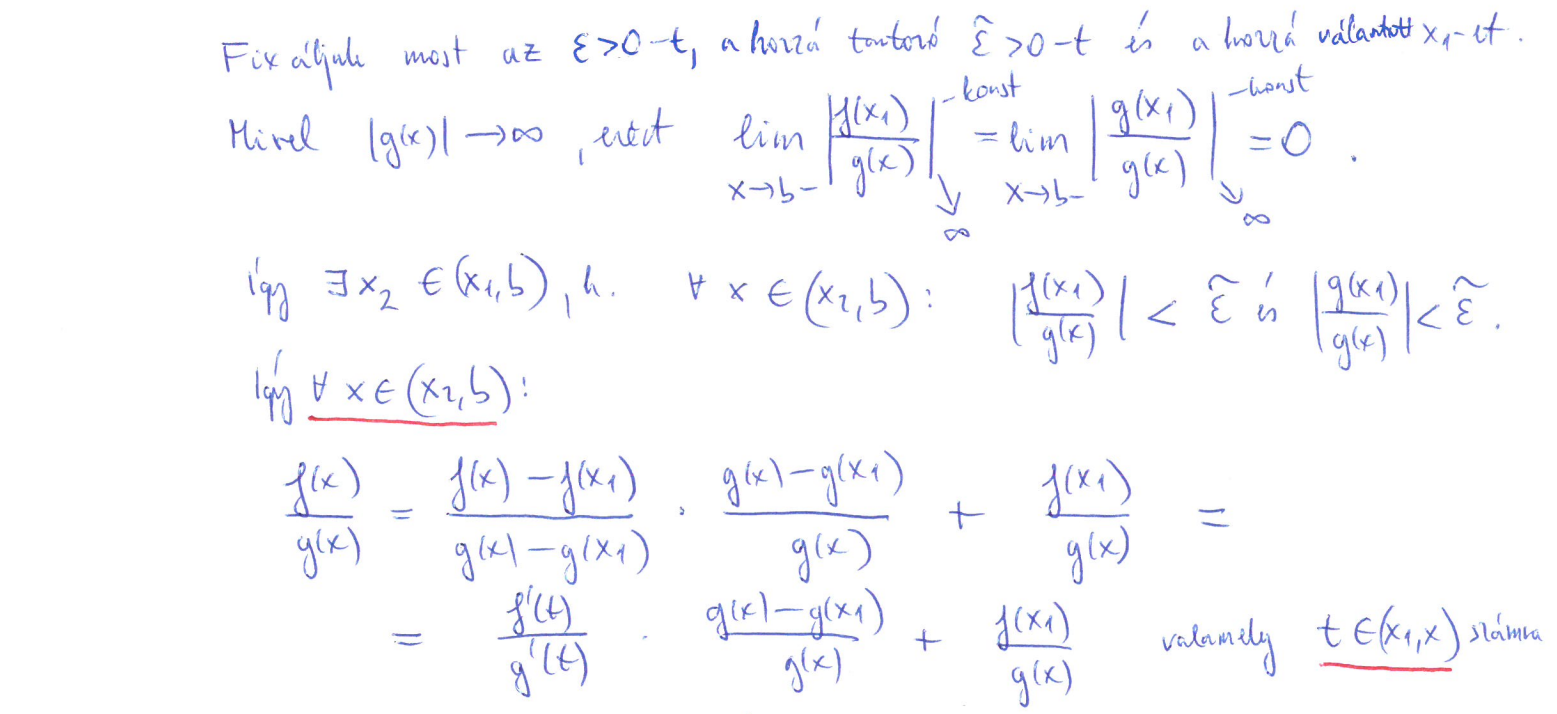 Fixáljuk most az ε>0-t, a hozzá tartozó ε̃>0-t és a hozzá választott x₁-et.
Mivel |g(x)|→∞, ezért lim_{x→b-} |f(x₁)/g(x)| -konst ↘∞ = lim_{x→b-} |g(x₁)/g(x)| -konst ↘∞ = 0.
Így ∃x₂ ∈(x₁,b), h. ∀ x ∈(x₂,b): |f(x₁)/g(x)| < ε̃ és |g(x₁)/g(x)| < ε̃.
Így ∀ x∈(x₂,b):
f(x)/g(x) = (f(x)-f(x₁))/(g(x)-g(x₁)) · (g(x)-g(x₁))/g(x) + f(x₁)/g(x) =
= f'(t)/g'(t) · (g(x)-g(x₁))/g(x) + f(x₁)/g(x) valamely t∈(x₁,x) számra